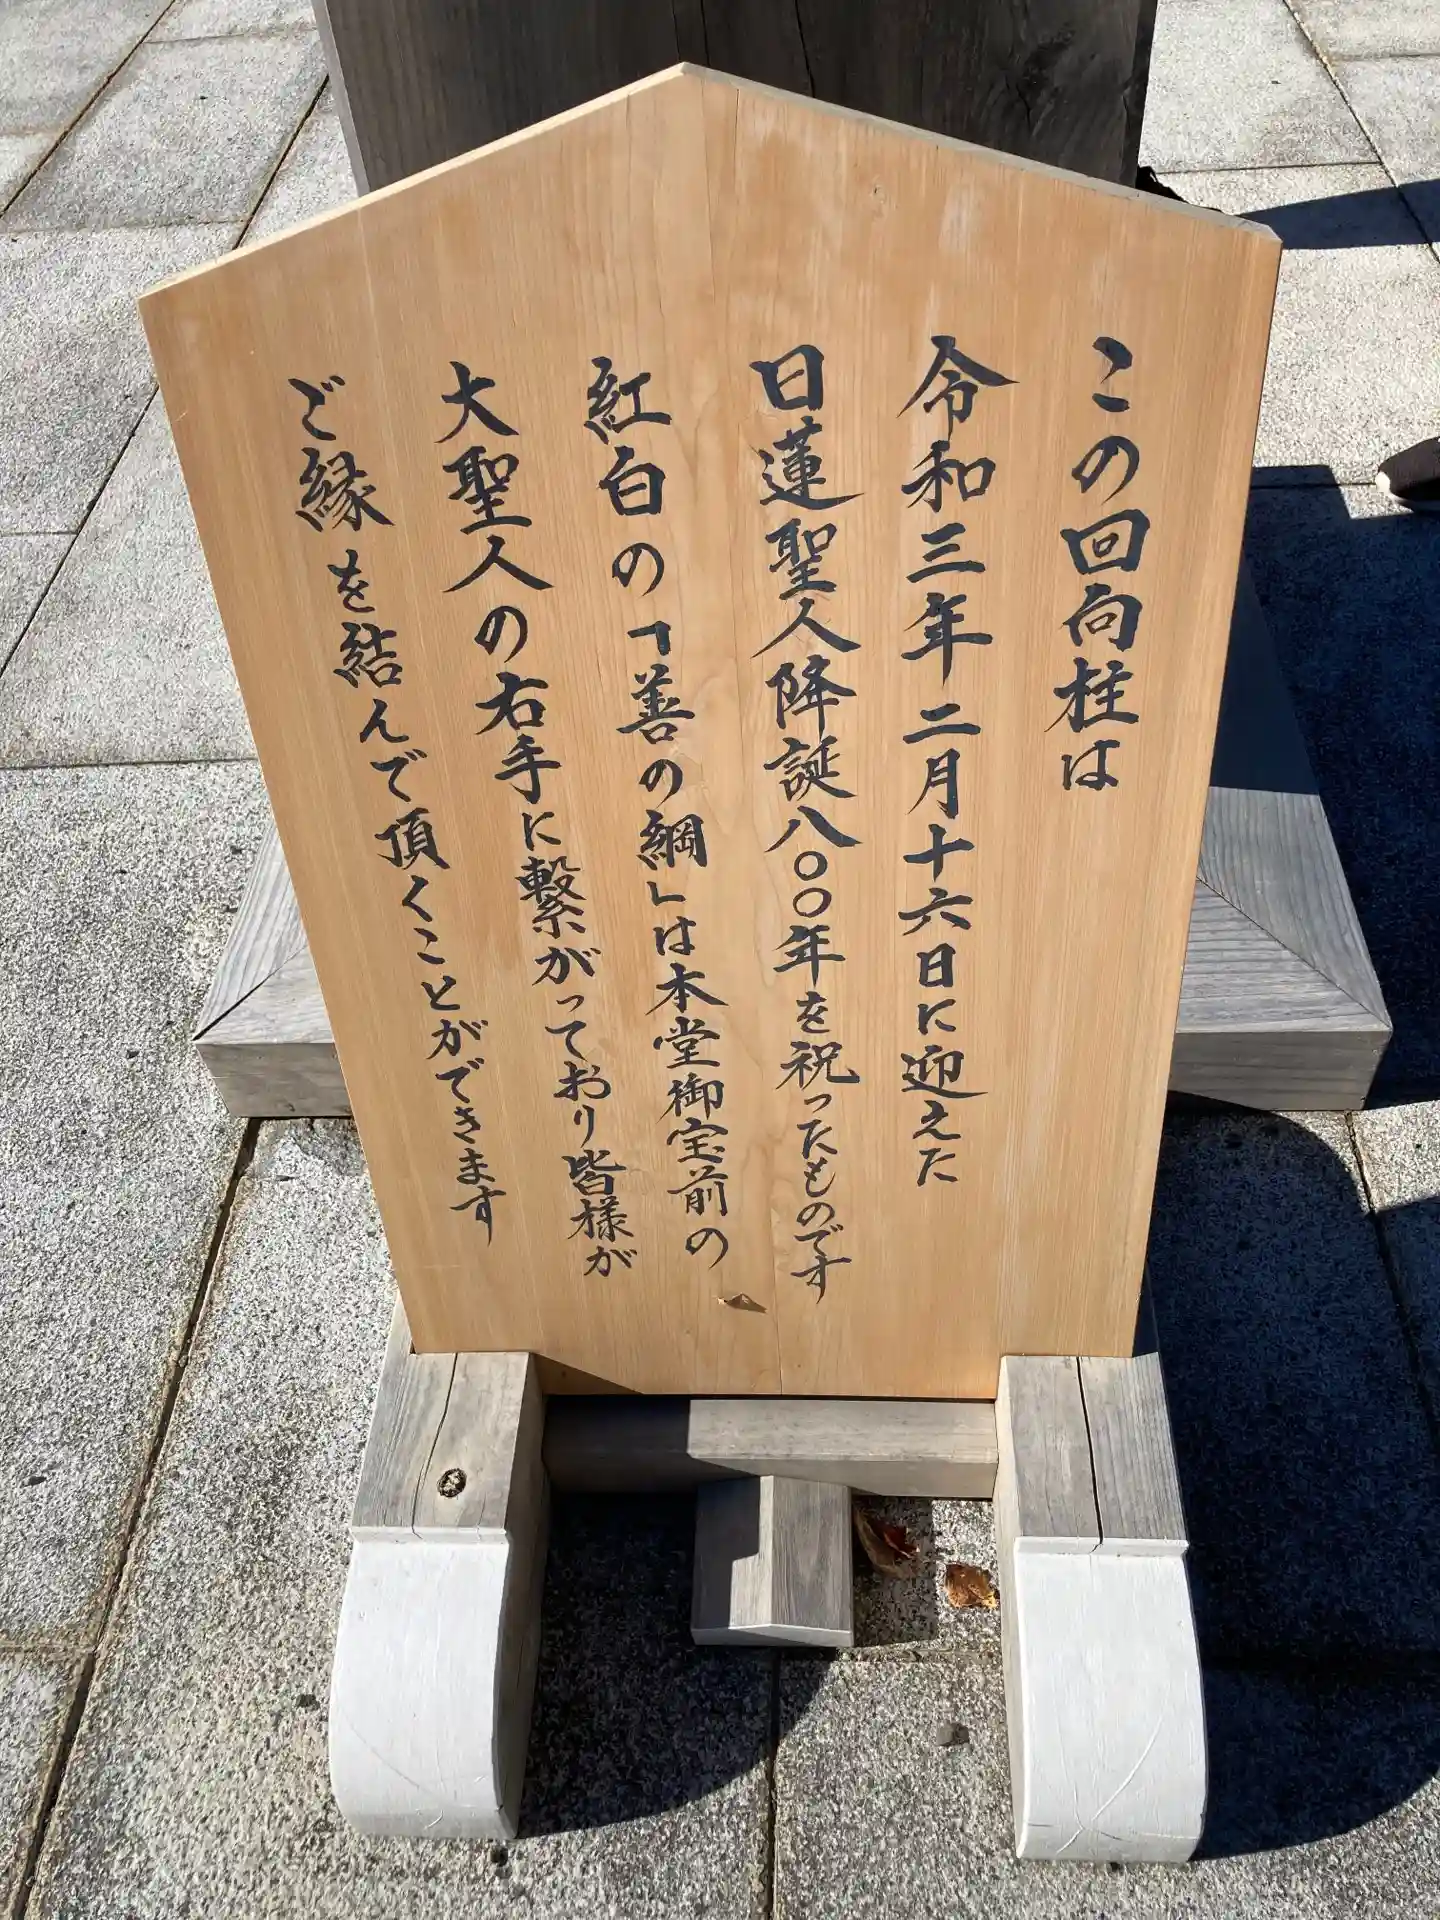 この回向柱は
令和三年二月十六日に迎えた
日蓮聖人降誕八〇〇年を祝ったものです
紅白の「善の綱」は本堂御宝前の
大聖人の右手に繋がっており皆様が
ご縁を結んで頂くことができます